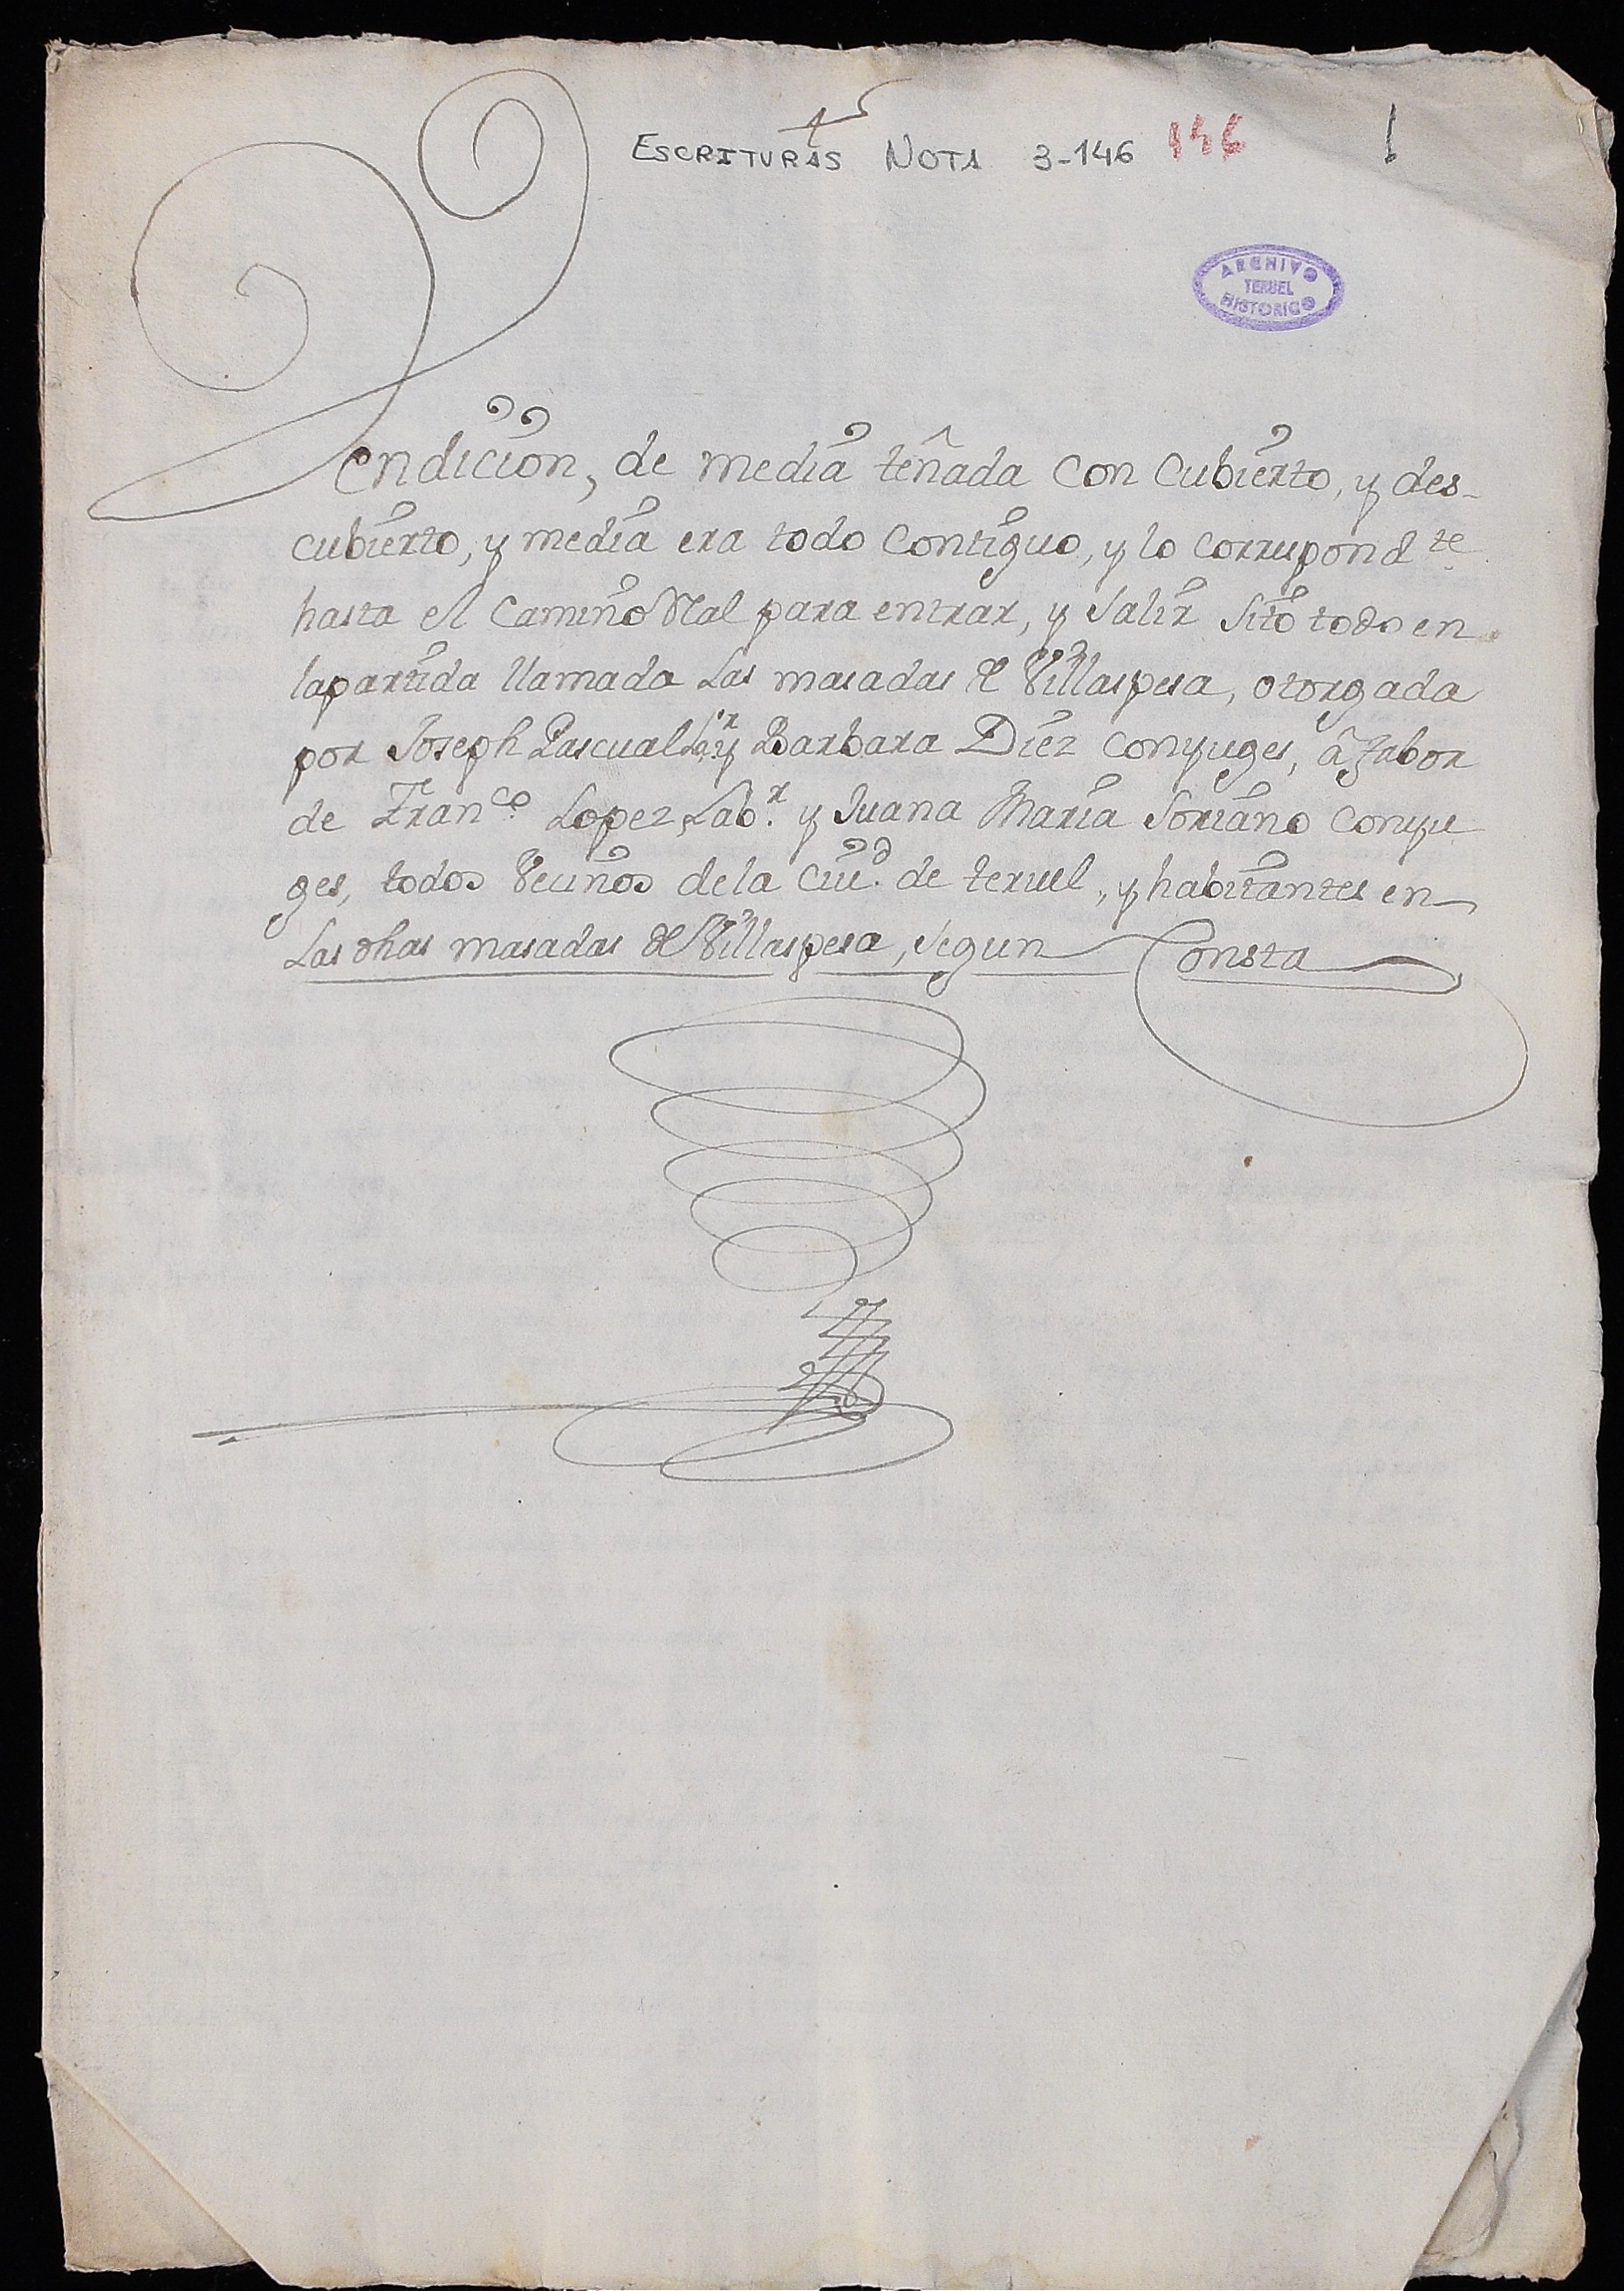 ESCRITURAS NOTA 3-146 146 1
ARCHIVO
TERUEL
HISTORICO
Vendicion, de media teñada con cubierto, y des-
cubierto, y media era todo contiguo, y lo correspond.te
hasta el camino Ral para entrar, y salir sito todo en
la partida llamada Las masadas de Villaspesa, otorgada
por Joseph Pascual Lar.r y Barbara Diez conyuges, â fabor
de Fran.co Lopez, Lab.r y Juana Maria Soriano conyu
ges, todos Vecinos de la Ciu.d de teruel, y habitantes en
Las dhas masadas de Villaspesa, segun Consta